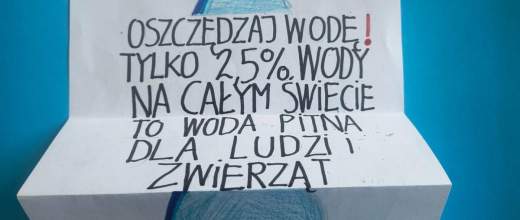 OSZCZĘDZAJ WODĘ!
TYLKO 2,5% WODY
NA CAŁYM ŚWIECIE
TO WODA PITNA
DLA LUDZI I
ZWIERZĄT